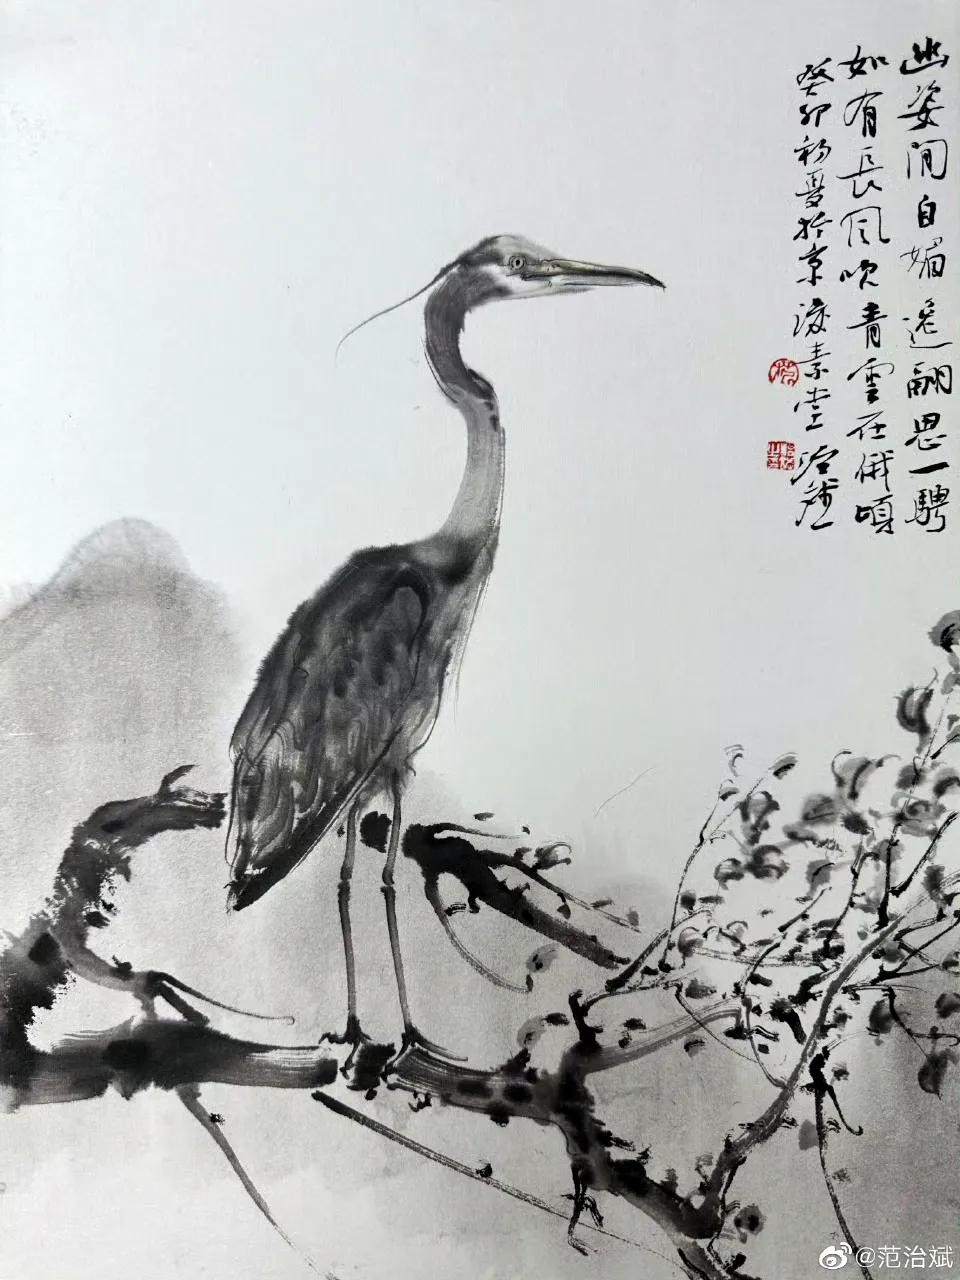 幽姿閒自媚逸翮思一騁
如有長風吹青雲在俄頃
癸卯初夏於京澄素堂治斌
@范治斌